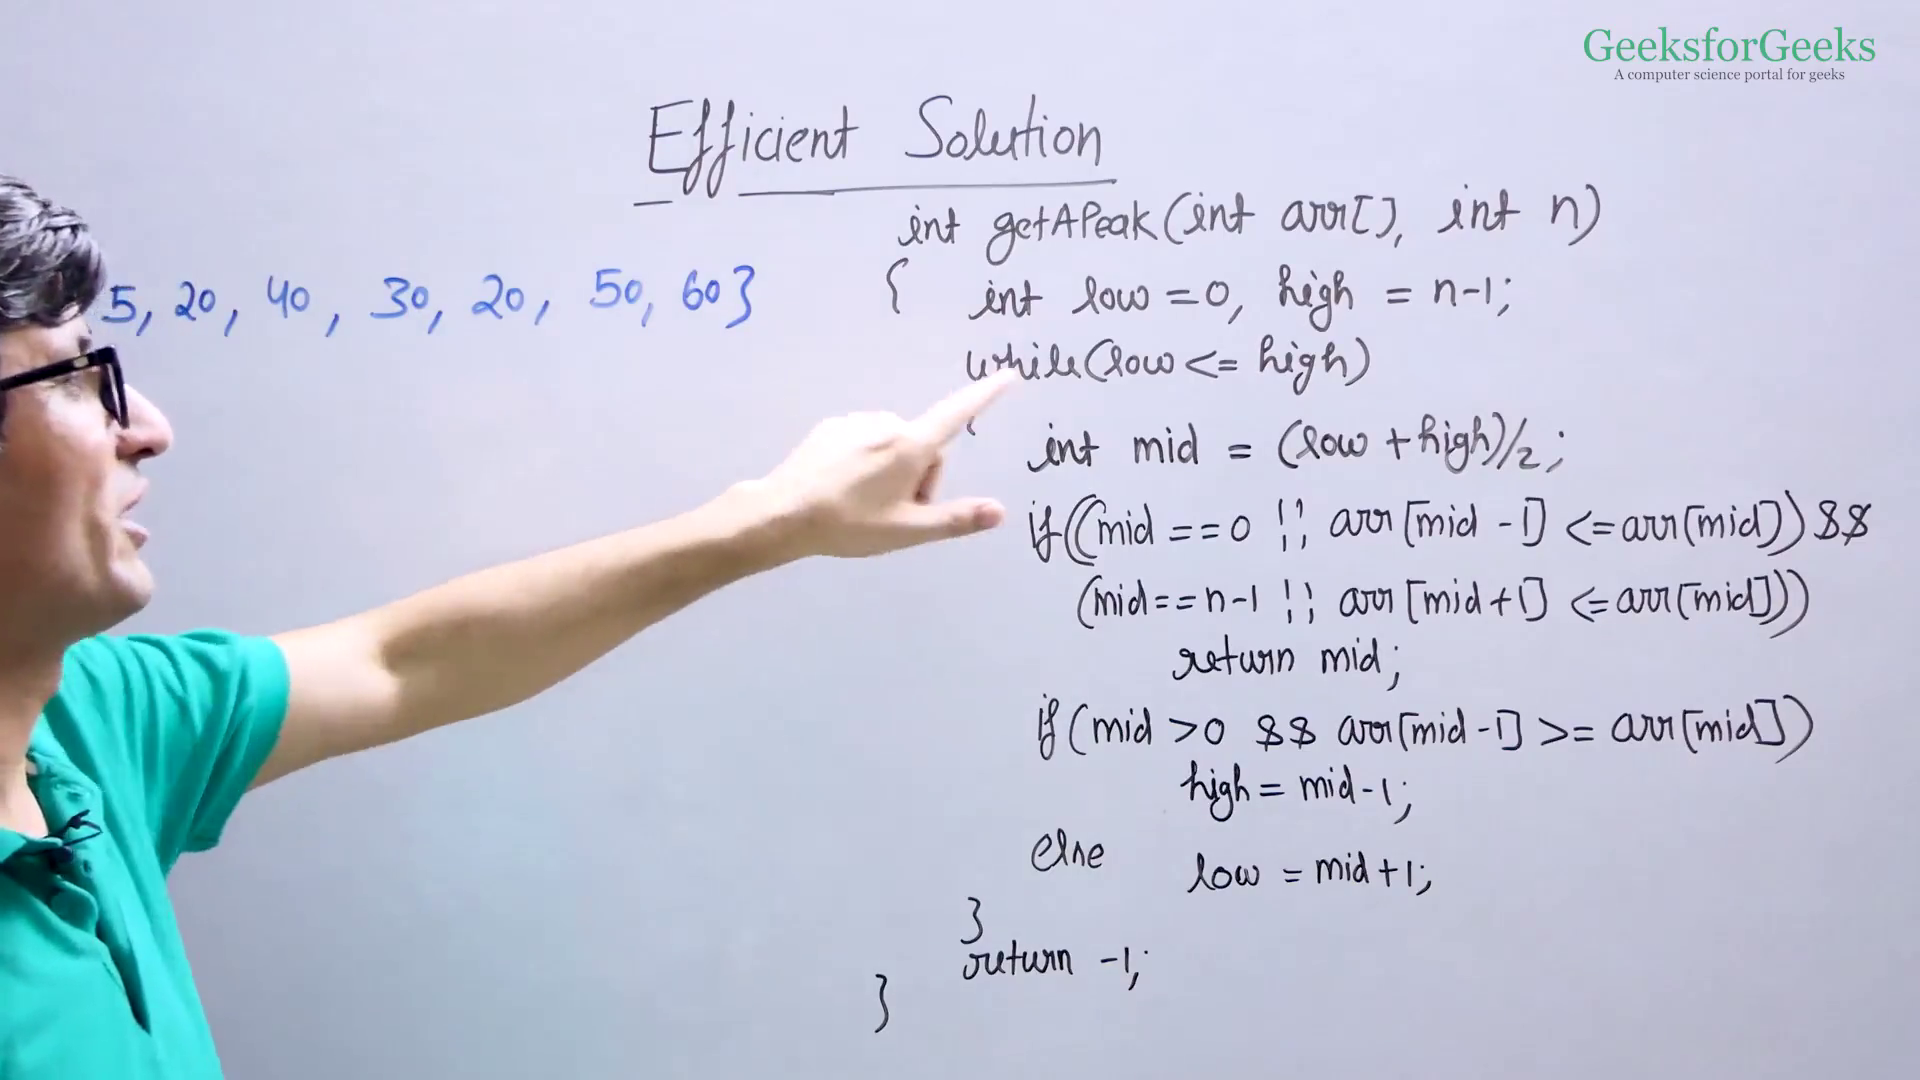 GeeksforGeeks
A computer science portal for geeks
Efficient Solution
5, 20, 40, 30, 20, 50, 60}
int getAPeak(int arr[], int n)
{ int low = 0, high = n-1;
while(low <= high)
{
int mid = (low + high)/2;
if((mid == 0 || arr[mid - 1] <= arr[mid]) &&
(mid == n-1 || arr[mid+1] <= arr[mid]))
return mid;
if(mid > 0 && arr[mid -1] >= arr[mid])
high = mid-1;
else low = mid+1;
}
return -1;
}